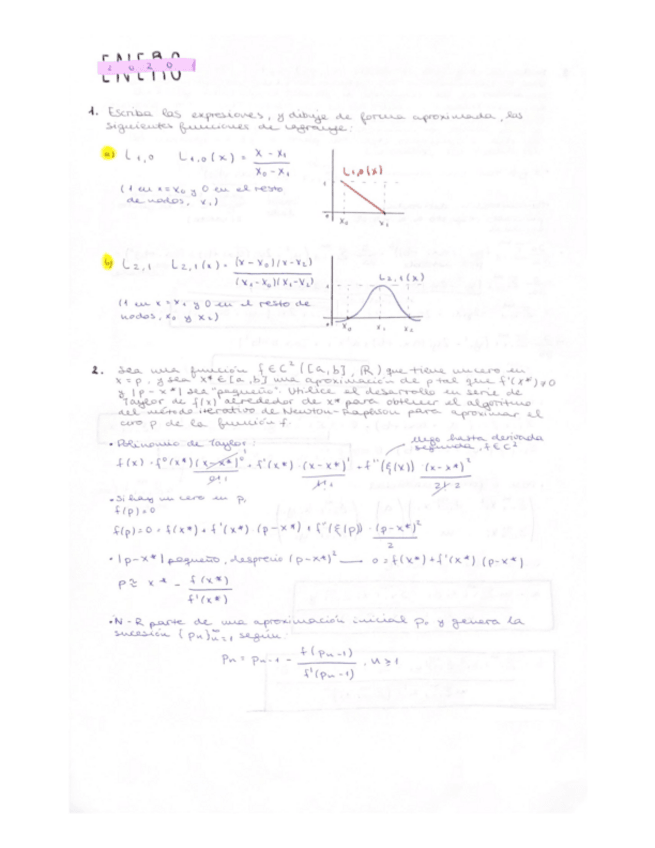 ENERO
2020
1. Escriba las expresiones, y dibuje de forma aproximada, las
siguientes funciones de Lagrange:
a) L₁,₀ L₁,₀(x) = (x - x₁)/(x₀ - x₁)
(1 en x=x₀ y 0 en el resto
de nodos, x₁)
L₁,₀(x)
1
0
x₀ x₁
b) L₂,₁ L₂,₁(x) = (x - x₀)(x - x₂)/(x₁ - x₀)(x₁ - x₂)
(1 en x = x₁ y 0 en el resto de
nodos, x₀ y x₂)
L₂,₁(x)
1
0
x₀ x₁ x₂
2. Sea una función f ∈ C² ([a,b], ℝ) que tiene un cero en
x = p, y sea x* ∈ [a,b] una aproximación de p tal que f'(x*) ≠ 0
y |p - x*| sea "pequeño". Utilice el desarrollo en serie de
Taylor de f(x) alrededor de x* para obtener el algoritmo
del método iterativo de Newton-Raphson para aproximar el
cero p de la función f.
• Polinomio de Taylor:
llego hasta derivada
segunda, f ∈ C²
f(x) = f⁰(x*) (x-x*)⁰/0! + f'(x*) · (x-x*)¹/1! + f''(ξ(x)) (x-x*)²/2! 2
• Si hay un cero en p,
f(p)=0
f(p)=0 = f(x*) + f'(x*) (p-x*) + f''(ξ(p)) · (p-x*)²/2
• |p-x*| pequeño, desprecio (p-x*)² — 0 = f(x*) + f'(x*) (p-x*)
p ≈ x* - f(x*)/f'(x*)
• N-R parte de una aproximación inicial p₀ y genera la
sucesión (pₙ)∞ₙ₌₁ según:
pₙ = pₙ₋₁ - f(pₙ₋₁)/f'(pₙ₋₁), n ≥ 1